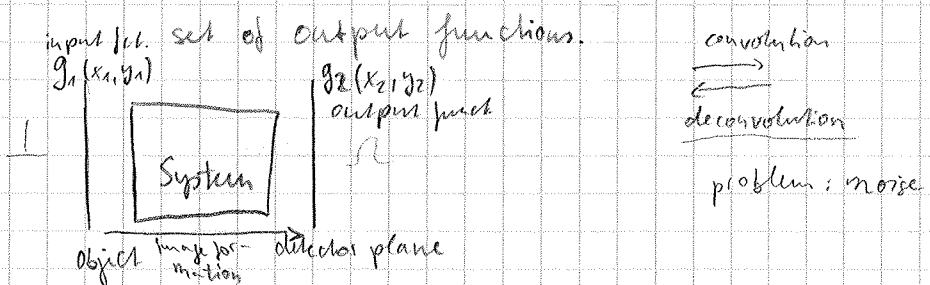 input fct. set of output functions.
g₁(x₁,y₁)
g₂(x₂,y₂)
output funct.
System
object
image for-
mation
detector plane
convolution
deconvolution
problem: noise